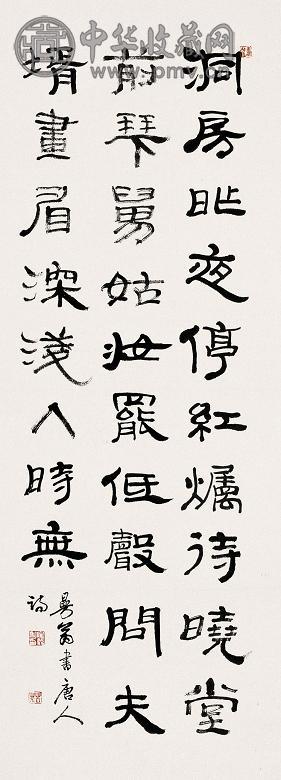 中华收藏网
洞房昨夜停紅爥待曉堂
前拜舅姑妝罷低聲問夫
壻畫眉深淺入時無
曼翁書唐人
詩